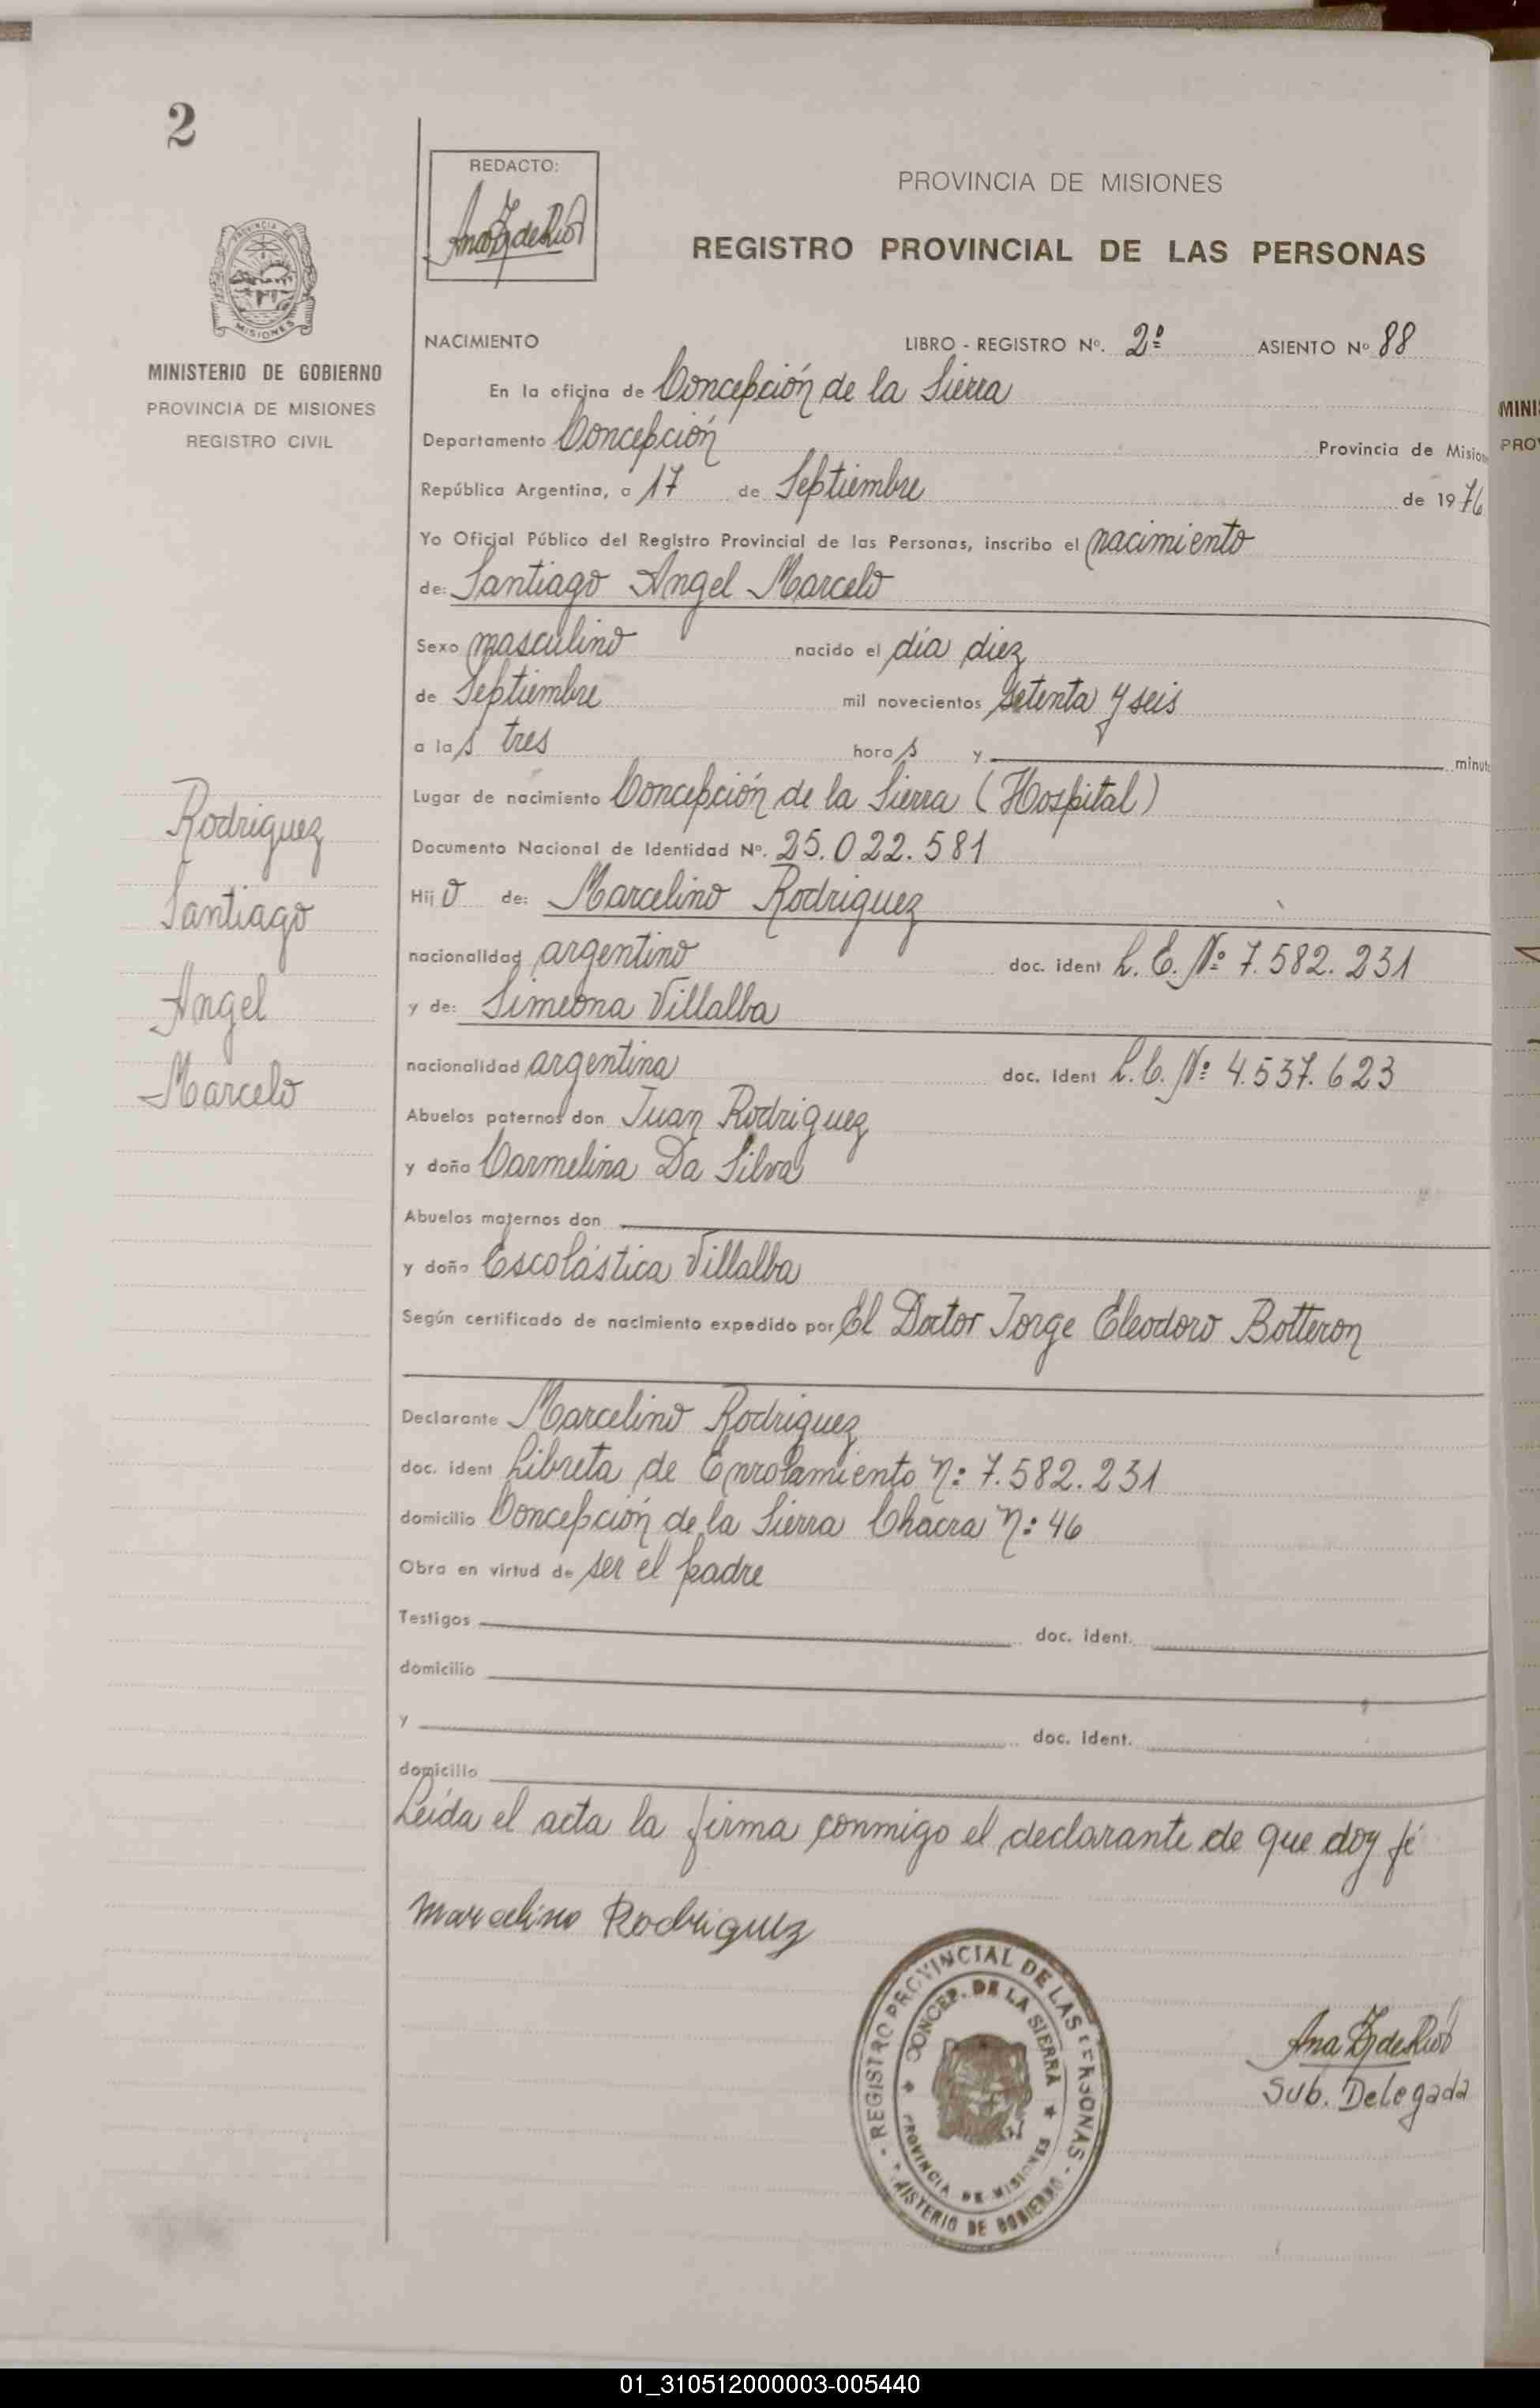 2
REDACTO:
PROVINCIA DE MISIONES
REGISTRO PROVINCIAL DE LAS PERSONAS
PROVINCIA DE
MISIONES
MINISTERIO DE GOBIERNO
PROVINCIA DE MISIONES
REGISTRO CIVIL
NACIMIENTO LIBRO - REGISTRO Nº. 2º ASIENTO Nº 88
En la oficina de Concepción de la Sierra
Departamento Concepción Provincia de Mision
República Argentina, a 17 de Septiembre de 1976
Yo Oficial Público del Registro Provincial de las Personas, inscribo el nacimiento
de: Santiago Angel Marcelo
Sexo masculino nacido el día diez
de Septiembre mil novecientos setenta y seis
a las tres horas y minut
Lugar de nacimiento Concepción de la Sierra (Hospital)
Documento Nacional de Identidad Nº. 25.022.581
Hijo de: Marcelino Rodriguez
nacionalidad argentino doc. ident L. E. Nº 7.582.231
y de: Simeona Villalba
nacionalidad argentina doc. ident L.C. Nº 4.537.623
Abuelos paternos don Juan Rodriguez
y doña Carmelina Da Silva
Abuelos maternos don
y doña Escolástica Villalba
Según certificado de nacimiento expedido por El Doctor Jorge Eleodoro Botteron
Declarante Marcelino Rodriguez
doc. ident Libreta de Enrolamiento Nº 7.582.231
domicilio Concepción de la Sierra Chacra Nº 46
Obra en virtud de ser el padre
Testigos doc. ident.
domicilio
y doc. ident.
domicilio
Leída el acta la firma conmigo el declarante de que doy fé
Marcelino Rodriguez
Rodriguez
Santiago
Angel
Marcelo
REGISTRO PROVINCIAL DE LAS PERSONAS
CONCEP. DE LA SIERRA
PROVINCIA DE MISIONES
MINISTERIO DE GOBIERNO
Sub. Delegada
MINI
PRO
01_310512000003-005440